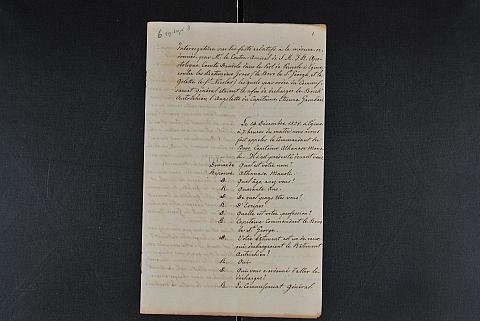 6
1
Interrogatoire sur les faits relatifs à la mesure or-
donnée par Mr. le Contre-Amiral de S. M. I. R. Apos-
tolique, Comte Dandolo dans le Port de à Egine
contre les Bâtimens Grecs, le Bove le St. George, et la
Golette le St. Nicolas, lesquels par ordre du Commis-
sariat Général étaient afin de décharger le Brick
Autrichien l'Angelette du Capitaine Etienne
Le 24 Décembre 1828, à Egine
à 7 heures du matin nous avons
fait appeler le Commandant du
Bove Capitaine Athanase Manoli.
Il s'est présenté devant nous
Demande Quel est votre nom?
Réponse Athanase Manoli.
D. Quel âge avez vous?
R. Quarante Ans.
D. De quel pays êtes vous?
R.
D. Quelle est votre profession?
R. Capitaine Commandant le Bove
le St. George.
D. Votre bâtiment est un de ceux
qui déchargeaient le Bâtiment
Autrichien?
R. Oui
D. Qui vous a ordonné d'aller le
décharger?
R. Le Commissariat Général